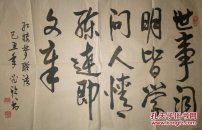 世事洞
明皆学
问人情
练达即
文章
红楼梦联语
己丑年
书